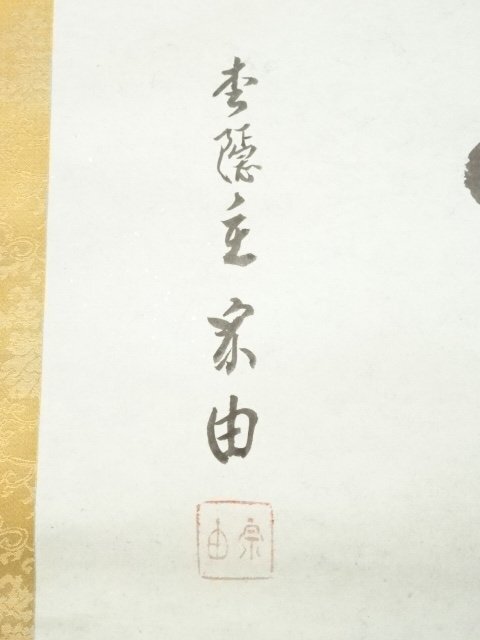 枩隠主 宗由
宗由